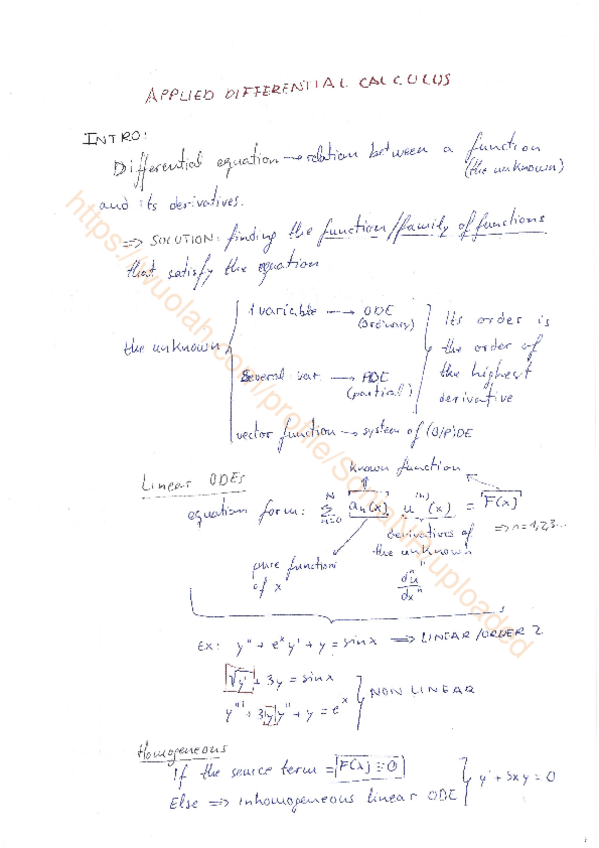 APPLIED DIFFERENTIAL CALCULUS
INTRO:
Differential equation → relation between a function
(the unknown)
and its derivatives.
⇒ SOLUTION: finding the function/family of functions
that satisfy the equation
the unknown
1 variable → ODE
(ordinary)
Several var. → PDE
(partial)
vector function → system of (O/P)DE
Its order is
the order of
the highest
derivative
Linear ODEs
known function
equation form: \sum_{n=0}^{N} a_n(x) u^{(n)}(x) = F(x)
⇒ n=1,2,3...
pure function
of x
derivatives of
the unknown
\frac{d^n u}{dx^n}
Ex: y'' + e^x y' + y = sinx ⇒ LINEAR/ORDER 2
√y' + 3y = sinx
y''' + 3yy'' + y = e^x
NON LINEAR
Homogeneous
If the source term = F(x) = 0
Else ⇒ inhomogeneous linear ODE
y' + 5xy = 0
https://wuolah.com/profile/
uploaded